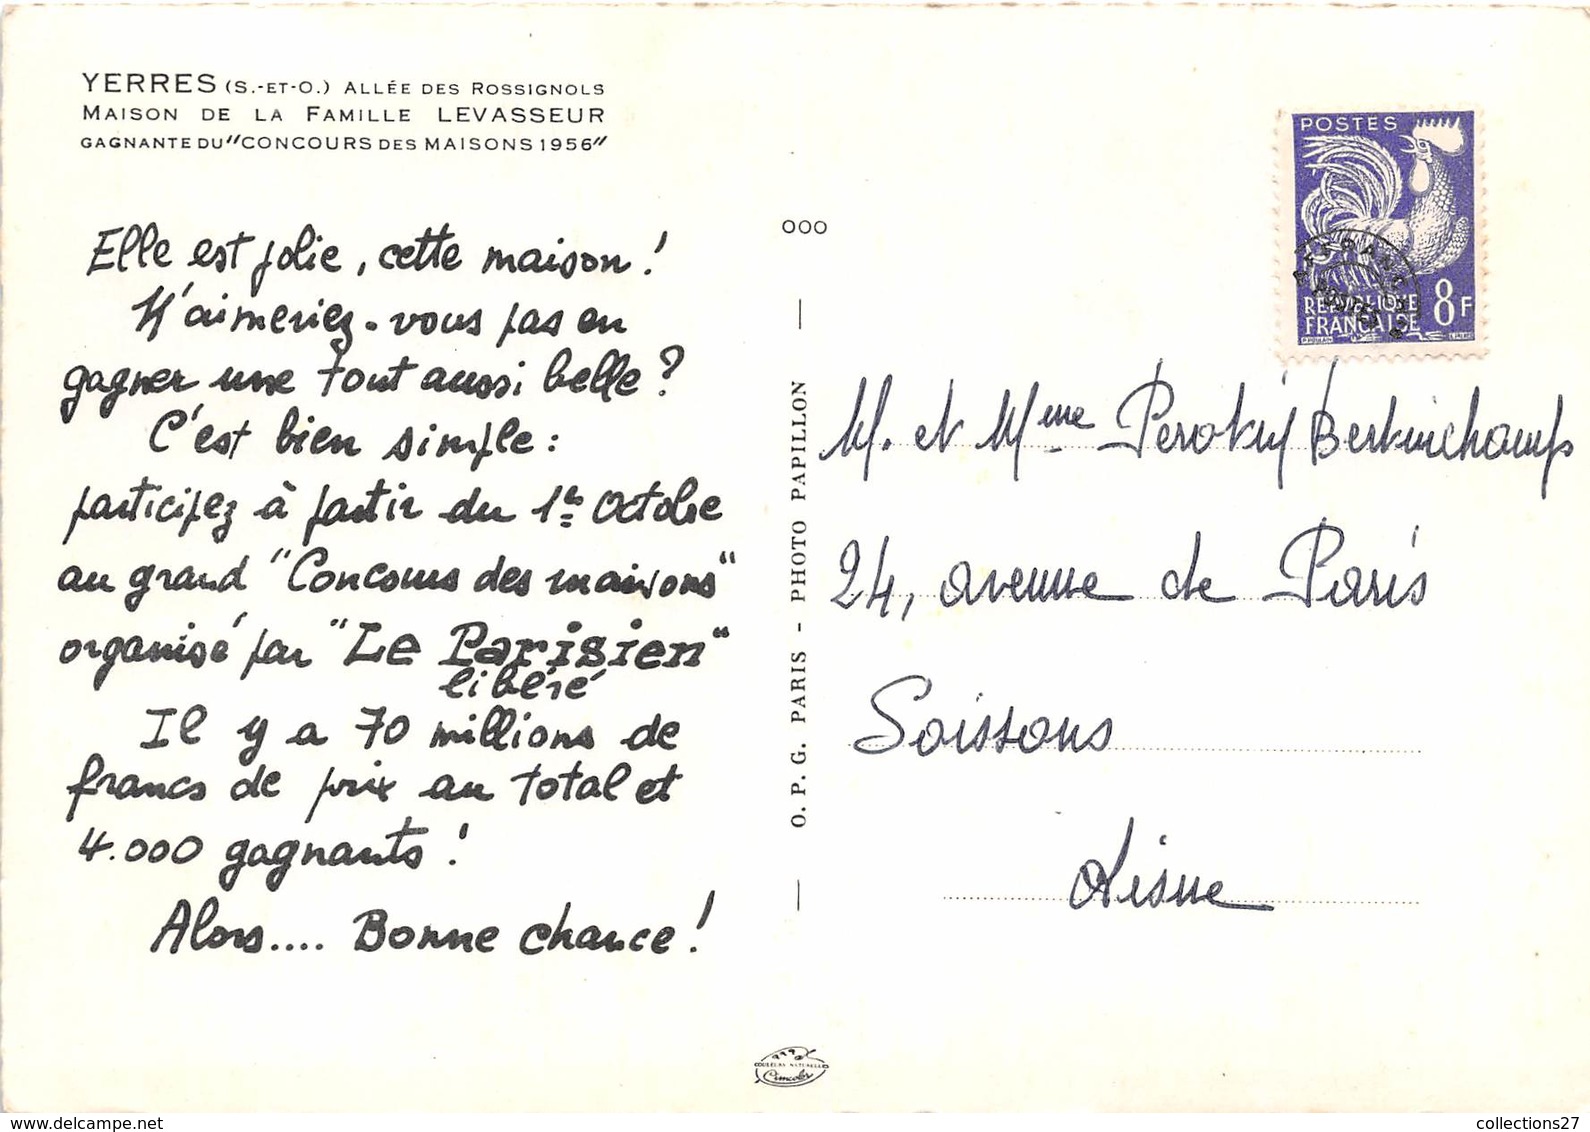 YERRES (S.-ET-O.) ALLÉE DES ROSSIGNOLS
MAISON DE LA FAMILLE LEVASSEUR
GAGNANTE DU "CONCOURS DES MAISONS 1956"
Elle est jolie, cette maison !
N'aimeriez-vous pas en
gagner une tout aussi belle ?
C'est bien simple :
participez à partir du 1er Octobre
au grand "Concours des maisons"
organisé par "Le Parisien"
libéré
Il y a 70 millions de
francs de prix au total et
4.000 gagnants !
Alors.... Bonne chance !
000
O. P. G. PARIS - PHOTO PAPILLON
POSTES
AFFRANCHts
POSTES
RÉPUBLIQUE
FRANÇAISE
8F
M. et Mme
24, avenue de Paris
Soissons
Aisne
COULEURS NATURELLES
Cimcolor
collections27